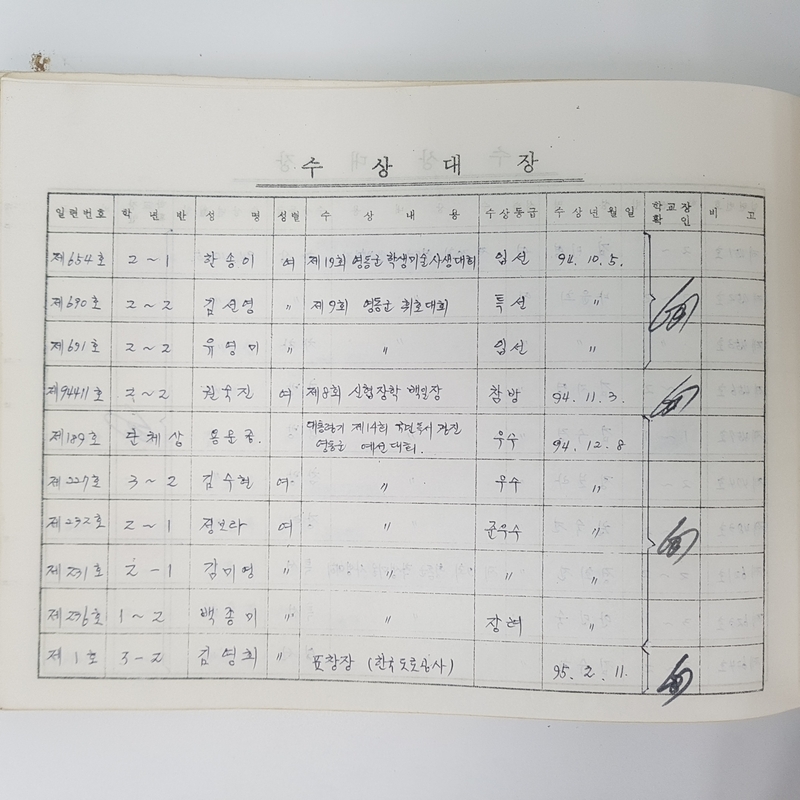 수 상 대 장
일련번호 학 년 반 성 명 성별 수 상 내 용 수상등급 수 상 년 월 일 학교장 확 인 비 고
제654호 2~1 한송이 여 제19회 영동군 학생미술사생대회 입선 94. 10. 5.
제690호 2~2 김선영 〃 제9회 영동군 휘호대회 특선 〃
제691호 2~2 유영미 〃 〃 입선 〃
제94411호 2~2 권숙진 여 제8회 신협장학 백일장 참방 94. 11. 3.
제189호 단체상 용운중. 대통령기 제14회 경진
영동군 예선대회. 우수 94. 12. 8
제227호 3~2 김수현 여 〃 우수 〃
제232호 2~1 정보라 여 〃 준우수 〃
제231호 2-1 김미영 〃 〃 〃 〃
제236호 1~2 백종미 〃 〃 장려 〃
제1호 3-2 김영희 〃 표창장 (한국도로공사) 95. 2. 11.